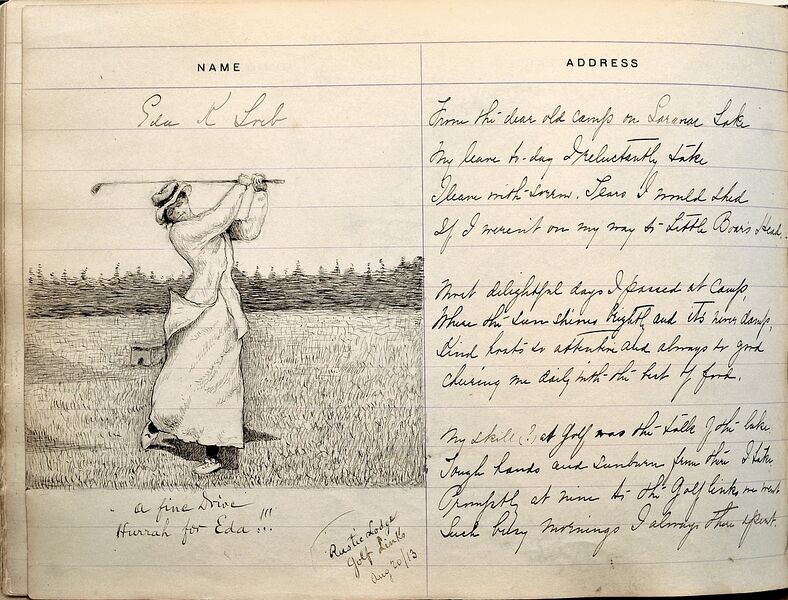 NAME
ADDRESS
Eda K Loeb
From the dear old camp on Saranac Lake
My leave to-day I reluctantly take
I leave with sorrow. Tears I would shed
If I weren't on my way to Little Boar's Head.
Most delightful days I passed at Camp,
Where the sun shines brightly and it's never damp,
Kind hosts so attentive and always so good
Cheering me daily with the best of food.
My skill (?) at Golf was the talk of the lake
Tough hands and sunburn from there I take
Promptly at nine to the Golf links we went
Such busy mornings I always there spent.
A fine Drive
Hurrah for Eda!!!
Rustic Lodge
Golf Links
Aug 20/13